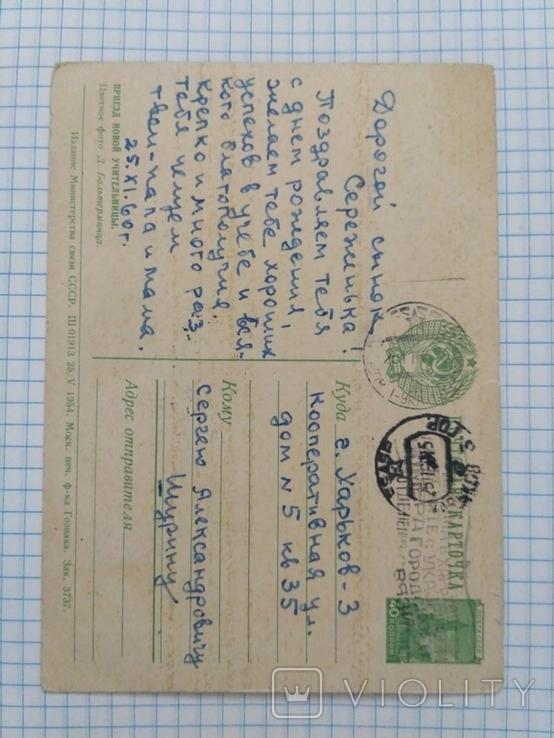 Дорогой сынок
Сереженька!
Поздравляем тебя
с днем рождения,
желаем тебе хороших
успехов в учебе и вся-
кого благополучия.
Крепко и много раз
тебя целуем
твои-папа и мама.
25.XI.60г.
ПРИЕЗД НОВОЙ УЧИТЕЛЬНИЦЫ.
Цветное фото Д. Бальтерманца.
Издание Министерства связи СССР. Ш 01913 28/V 1954. Моск. печ. ф-ка Гознака. Зак. 3737.
КАРТОЧКА
Куда г. Харьков-3
Кооперативная ул.
дом N 5 кв 35
Кому
Сергею Александровичу
Шурину
Адрес отправителя
40
VIOLITY